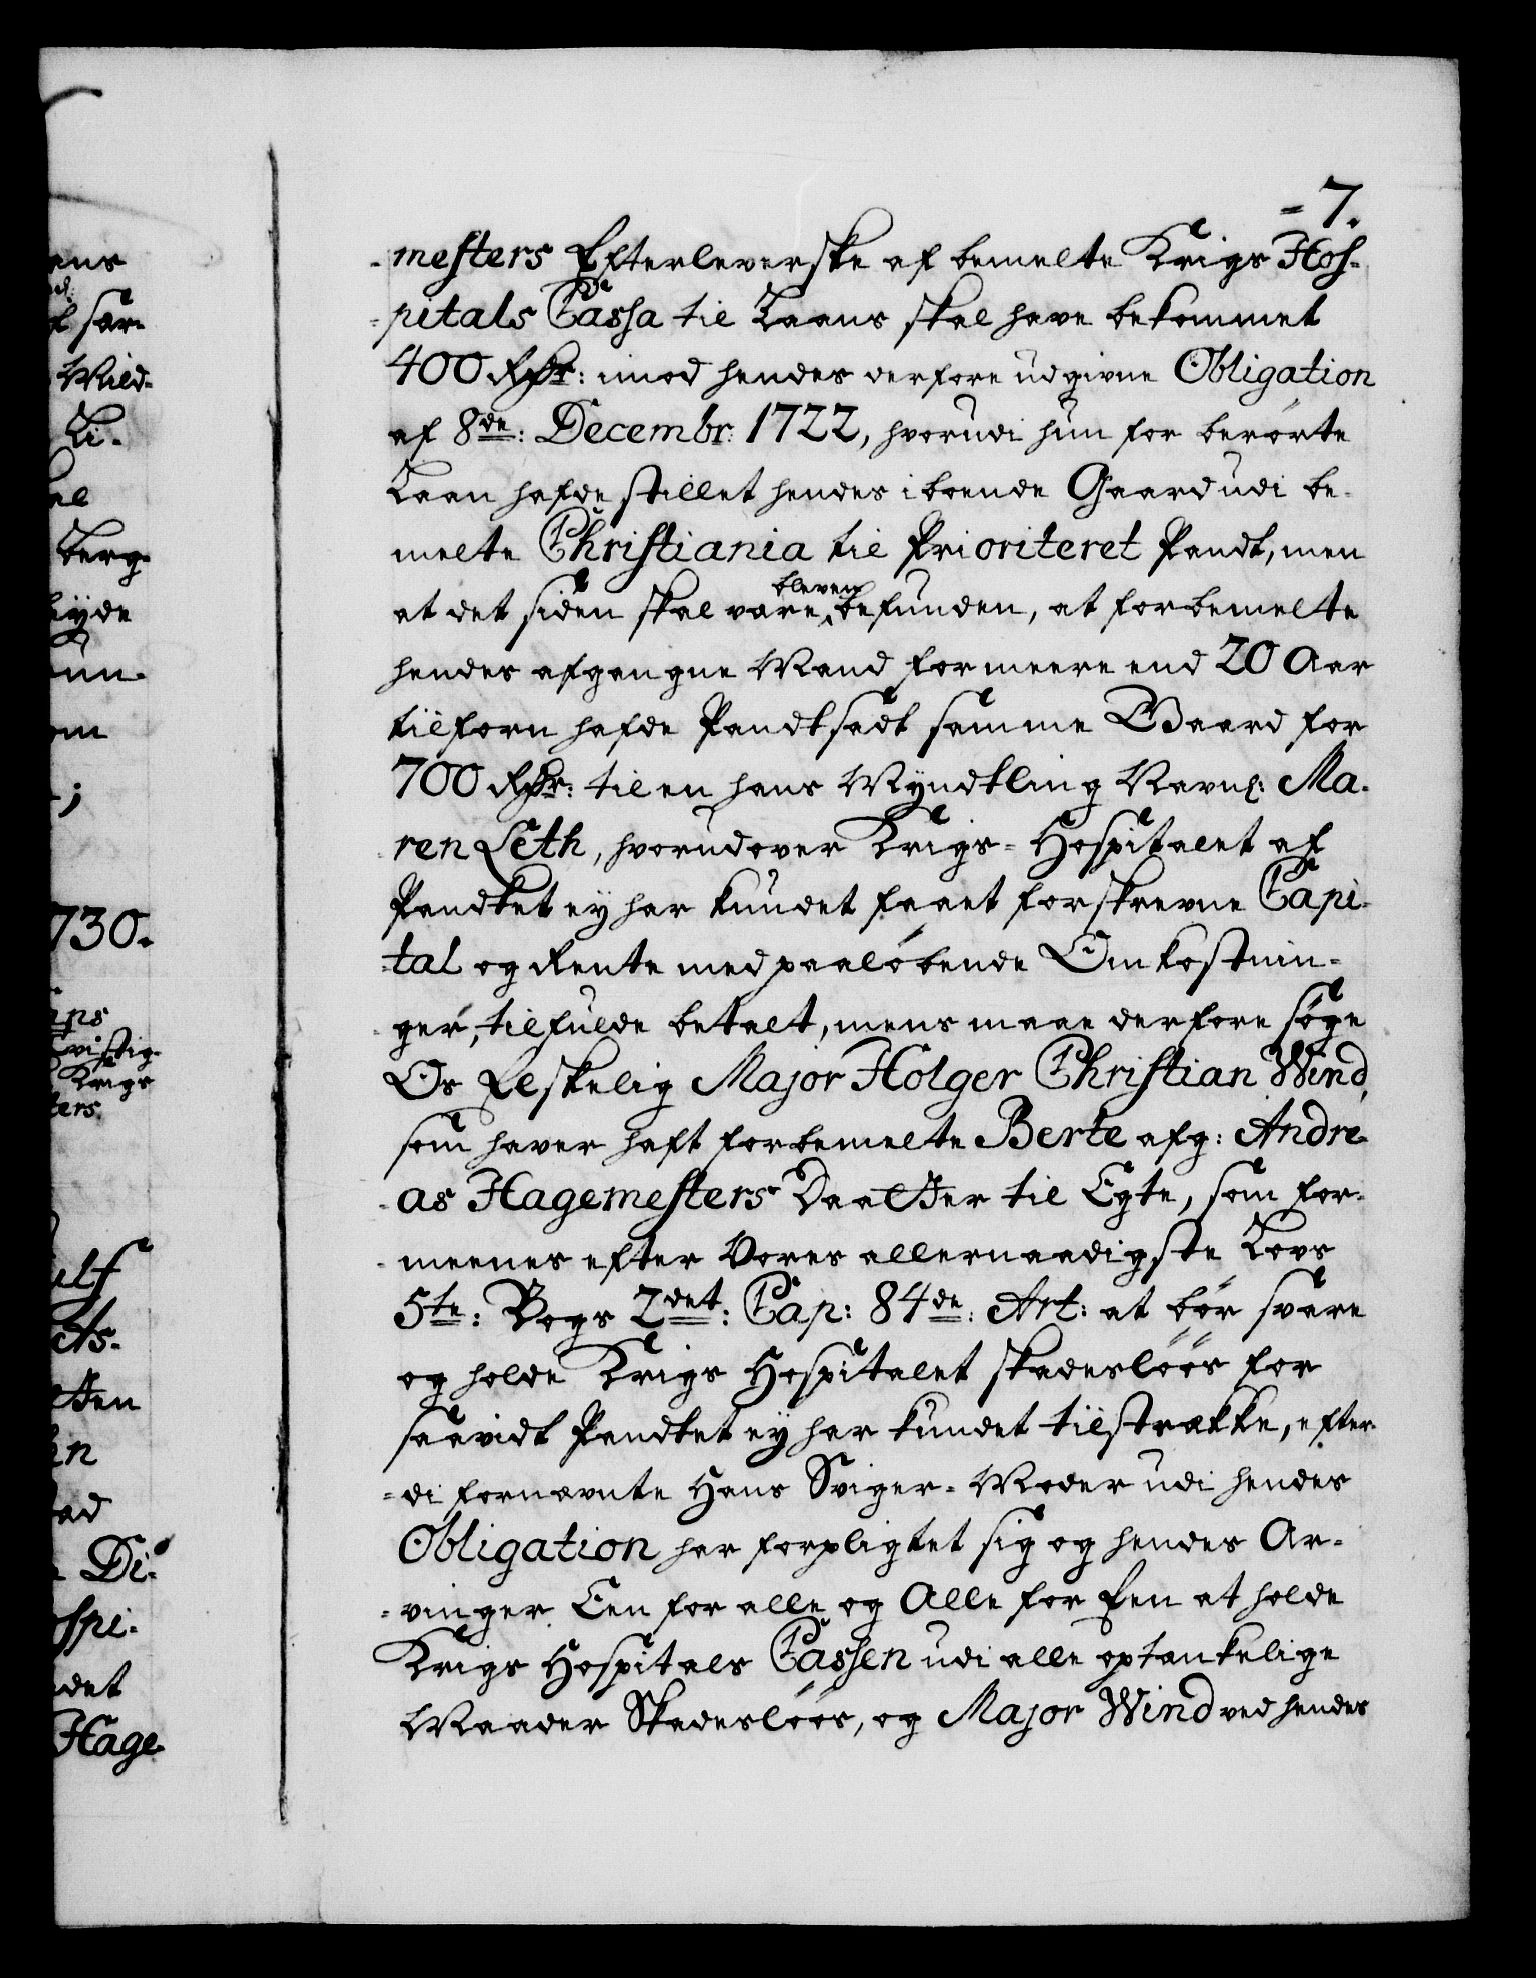 = 7.
- mesters Efterleverske af bemelte Krigs Hos-
- pitals Cassa til Laans skal have bekommet
400 Rdr: imod hendes derfore udgivne Obligation
af 8de: Decembr: 1722, hvorudi hun for berørte
Laan hafde stillet hendes iboende Gaard udi be-
melte Christiania til Prioriteret Pandt, men
at det siden skal være bleven befunden, at forbemelte
hendes afgangne Mand for meere end 20 Aar
tilforn hafde Pandtsadt samme Gaard for
700 Rdr: til en hans Myndtling Navnl: Ma-
- ren Leth, hvorudover Krigs-Hospitalet af
Pandtet ey har kundet faaet forskrevne Capi-
- tal og Rente med paaløbende Omkostnin-
- ger, tilfulde betalt, mens maae derfore søge
Os Elskelig Major Holger Christian Wind,
som haver haft forbemelte Berte afg: Andre-
- as Hagemesters Daatter til Egte, som for-
- meenes efter Vores allernaadigste Lovs
5te: Bogs 2det: Cap: 84de: Art: at bør svare
og holde Krigs Hospitalet skadesløös for
saavidt Pandtet ey har kundet tilstrække, efter-
- di fornævnte Hans Sviger-Moder udi hendes
Obligation har forpligtet sig og hendes Ar-
- vinger Een for alle og Alle for Een at holde
Krigs Hospitals Cassen udi alle optænkelige
Maader Skadesløös, og Major Wind ved hendes
ens
sær-
Mild-
Li-
el
berg-
eyde
un-
om
;
730.
vistig-
Krigs
ters
ulf
ets-
tten
en
ad
Di-
ospi-
det
Hage-